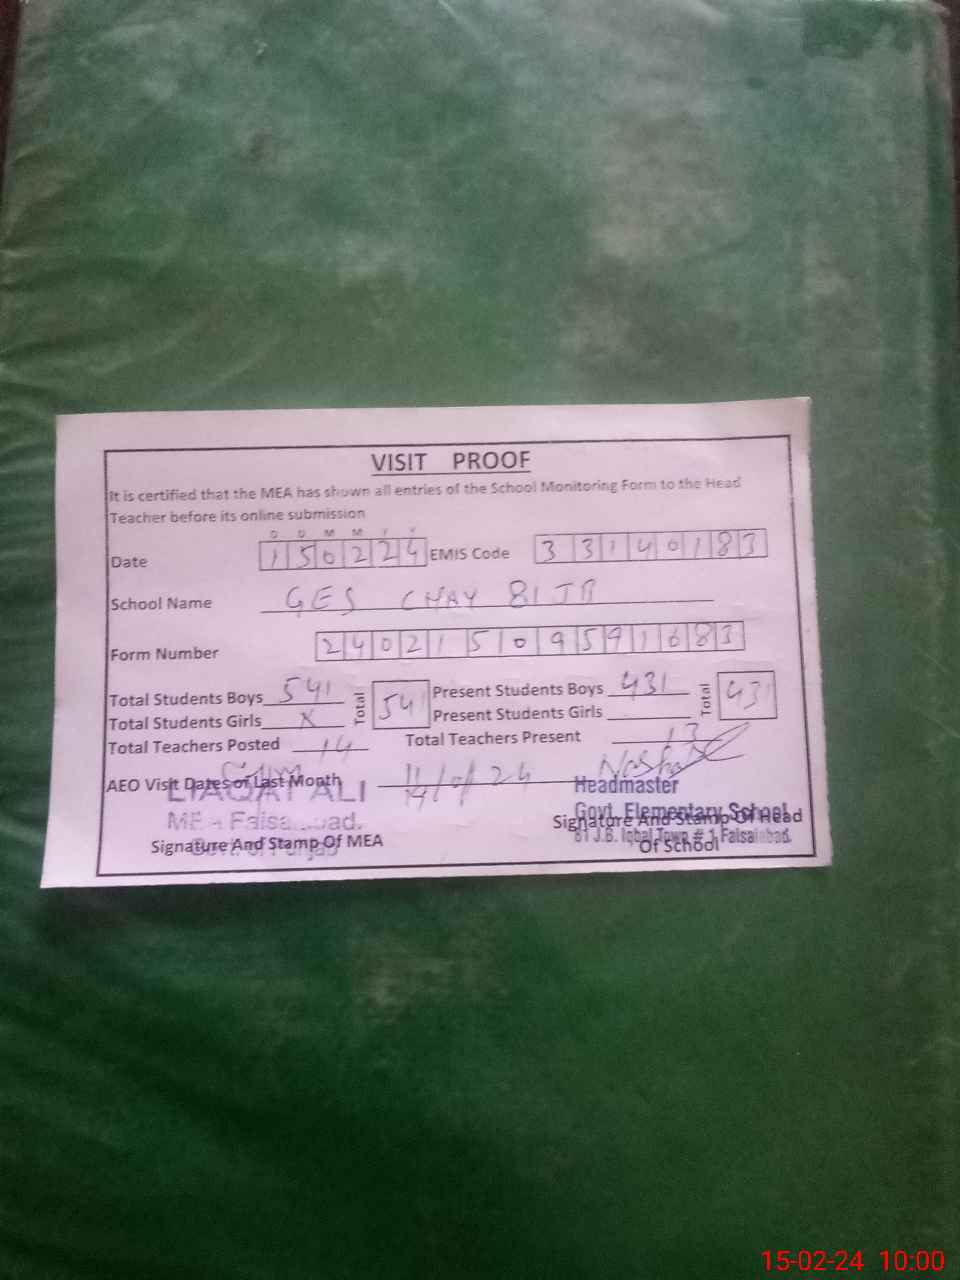 VISIT PROOF
It is certified that the MEA has shown all entries of the School Monitoring Form to the Head
Teacher before its online submission
D D M M Y Y
Date 150224 EMIS Code 33140183
School Name GES CHAY 81 JB
Form Number 24021509591683
Total Students Boys 541 Total 541 Present Students Boys 431 Total 431
Total Students Girls X Present Students Girls
Total Teachers Posted 14 Total Teachers Present 13
AEO Visit Dates of Last Month
LIAQAT ALI
Headmaster
Govt. Elementary School
81 J.B. Iqbal Town # 1 Faisalabad.
MEA Faisalabad.
Signature And Stamp Of MEA
Signature And Stamp Of Head
Of School
15-02-24 10:00